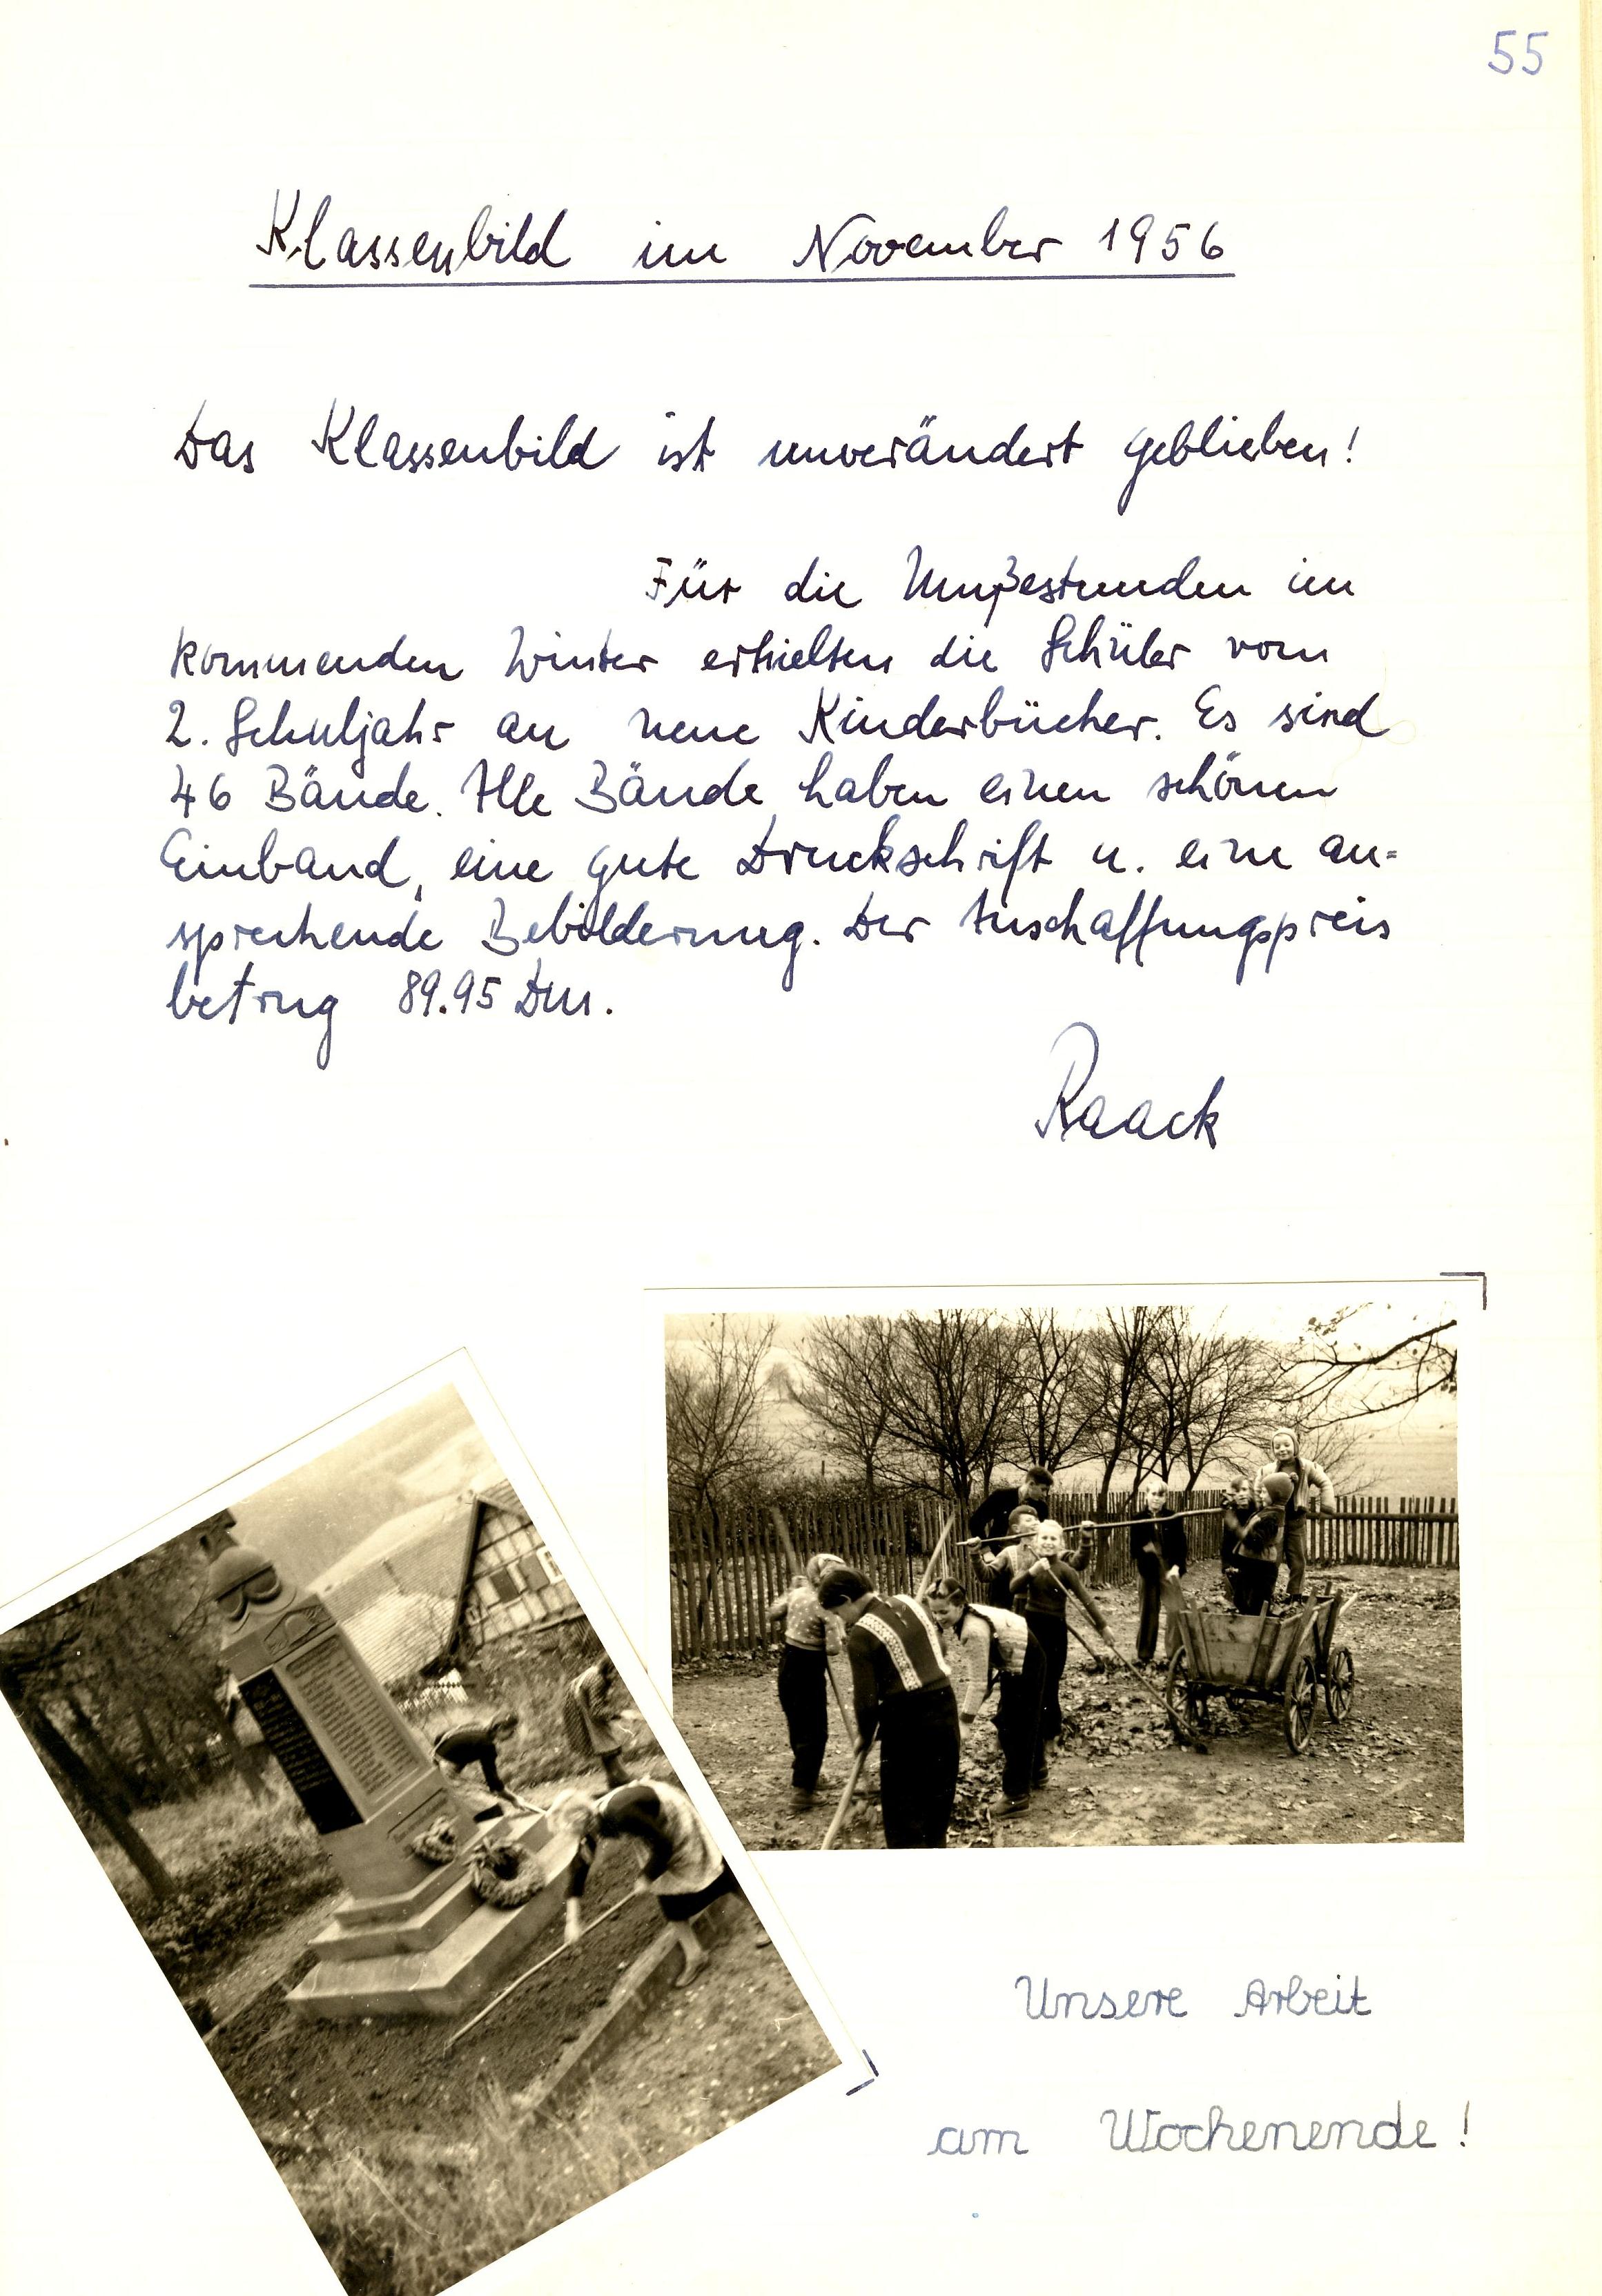 55
Klassenbild im November 1956
Das Klassenbild ist unverändert geblieben!
Für die Mußestunden im
kommenden Winter erhielten die Schüler vom
2. Schuljahr an neue Kinderbücher. Es sind
46 Bände. Alle Bände haben einen schönen
Einband, eine gute Druckschrift u. eine an=
sprechende Bebilderung. Der Anschaffungspreis
betrug 89.95 Dm.
Raack
Unsere Arbeit
am Wochenende!